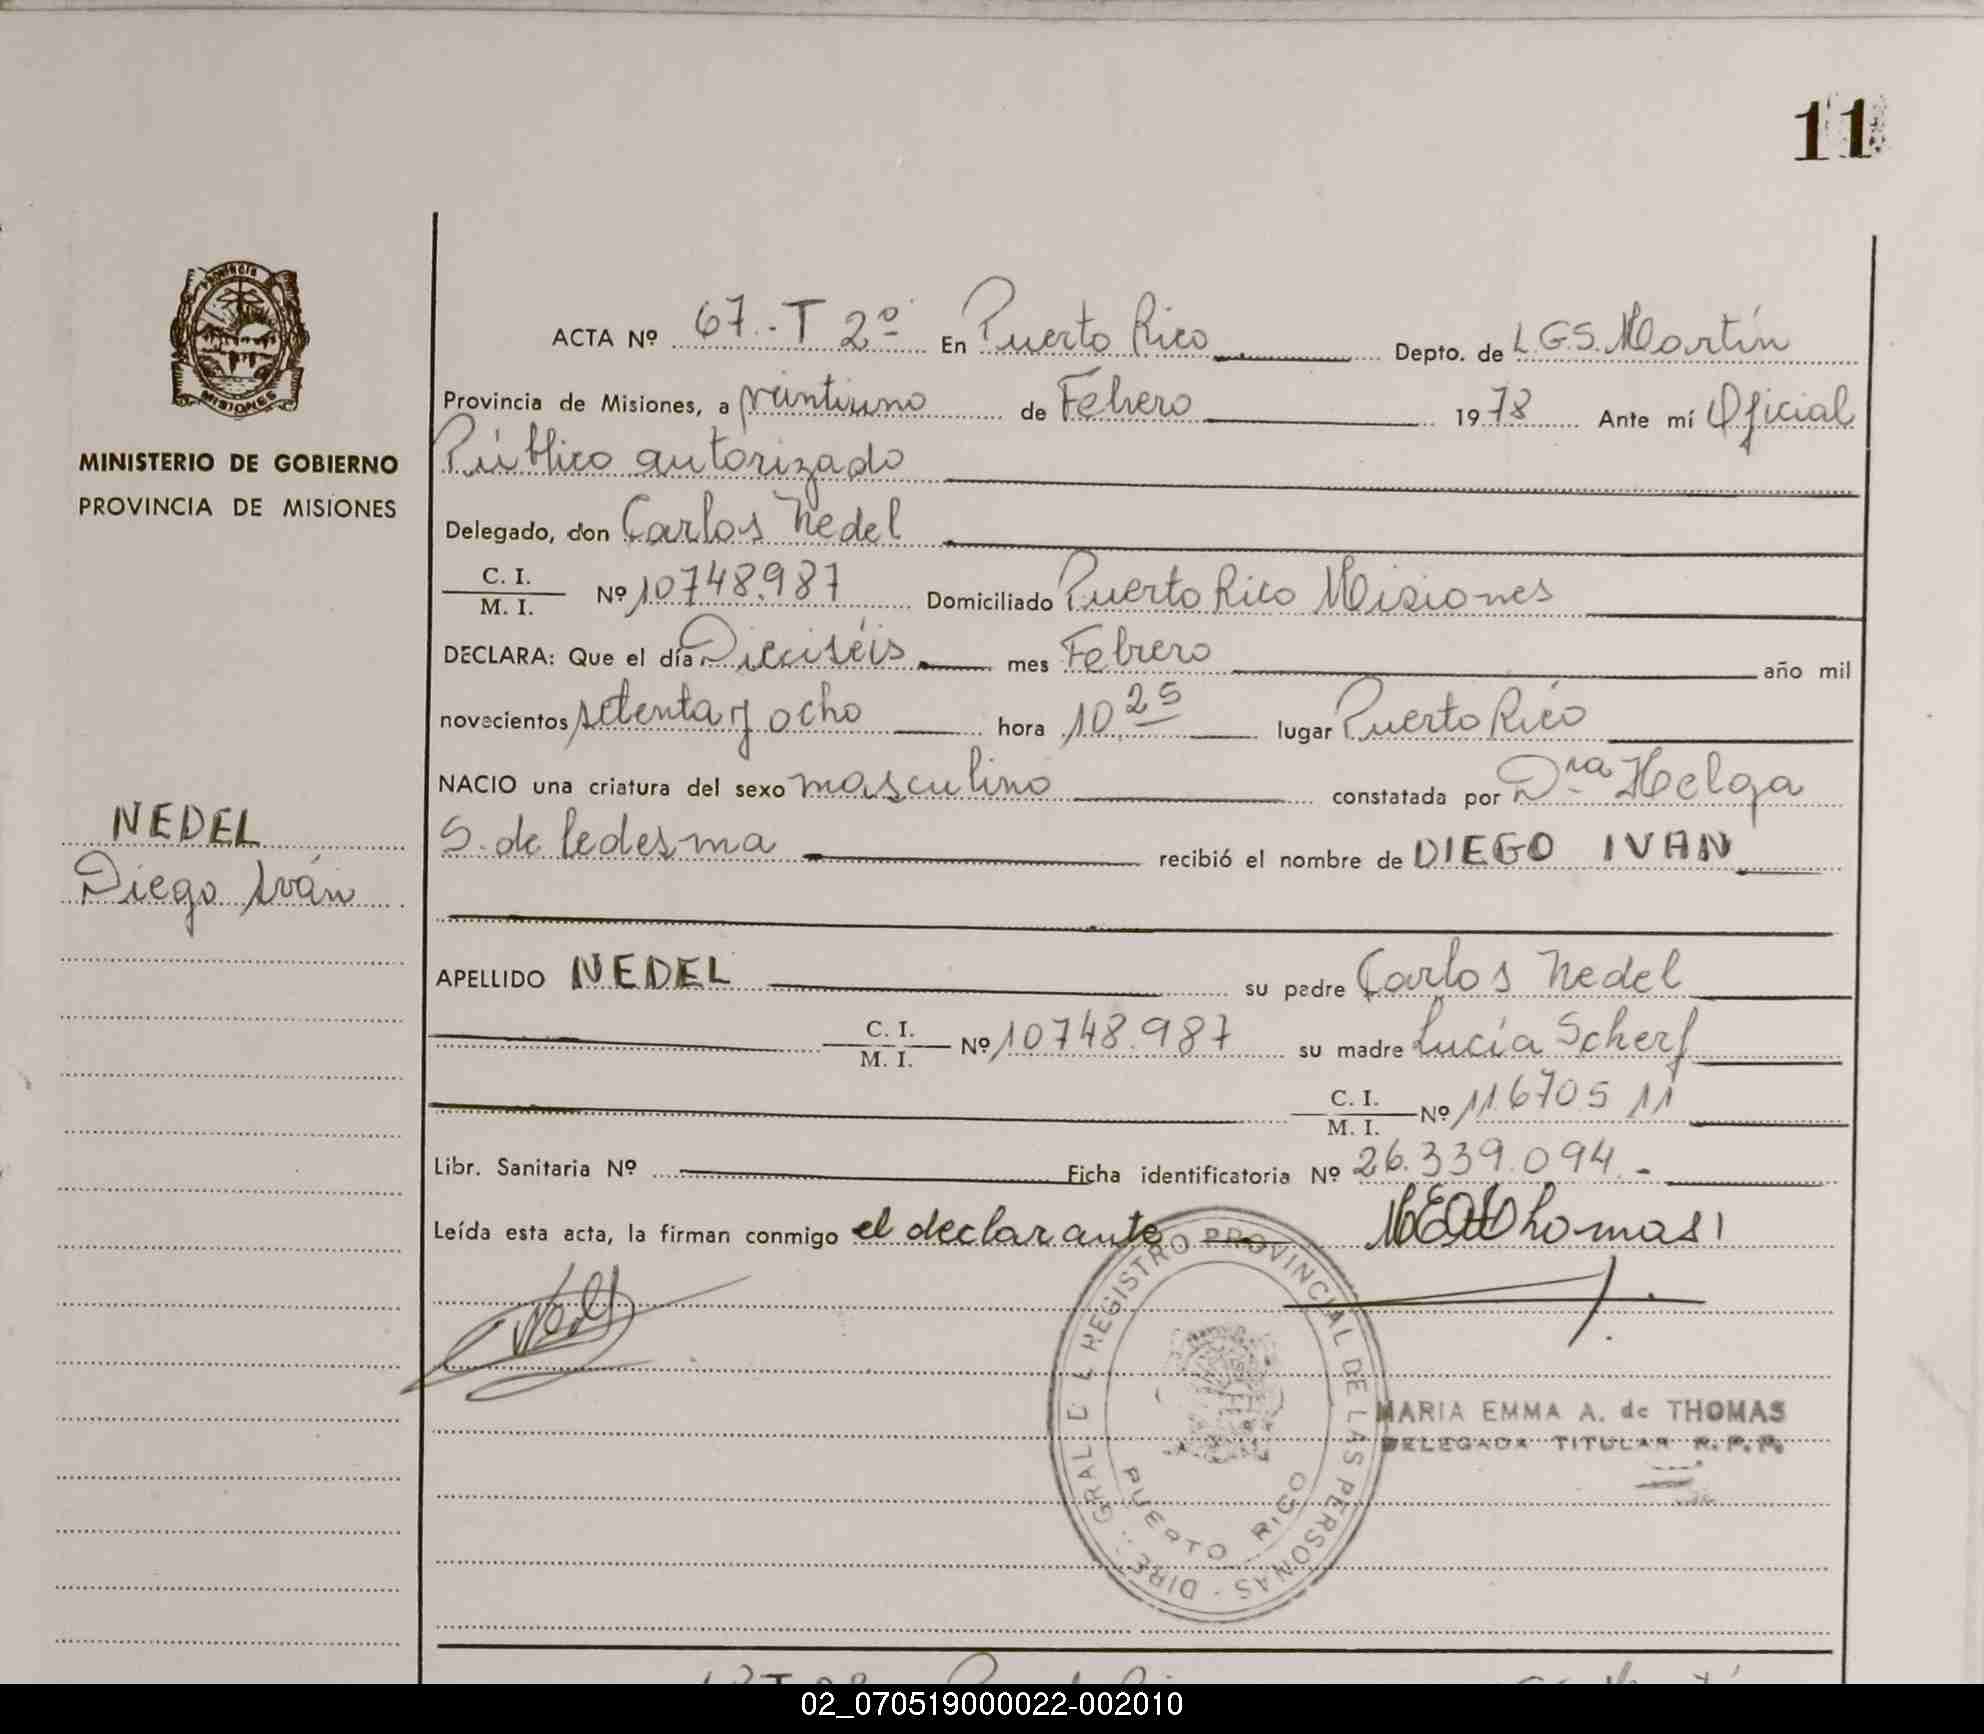 11
PROVINCIA
MISIONES
MINISTERIO DE GOBIERNO
PROVINCIA DE MISIONES
NEDEL
Diego Iván
ACTA Nº 67.-T 2º En Puerto Rico Depto. de L.G.S. Martín
Provincia de Misiones, a veintiuno de Febrero 1978 Ante mí Oficial
Público autorizado
Delegado, don Carlos Nedel
C. I.
M. I. Nº 10748.987 Domiciliado Puerto Rico Misiones
DECLARA: Que el día Dieciséis mes Febrero año mil
novecientos setenta y ocho hora 10.25 lugar Puerto Rico
NACIO una criatura del sexo masculino constatada por Dra Helga
S. de Ledesma recibió el nombre de DIEGO IVAN
APELLIDO NEDEL su padre Carlos Nedel
C. I.
M. I. Nº 10748.987 su madre Lucía Scherf
C. I.
M. I. Nº 11.670.511
Libr. Sanitaria Nº Ficha identificatoria Nº 26.339.094.-
Leída esta acta, la firman conmigo el declarante
DIREC. GRAL DEL REGISTRO PROVINCIAL DE LAS PERSONAS
PUERTO RICO
MARIA EMMA A. de THOMAS
DELEGADA TITULAR R.P.P.
02_070519000022-002010